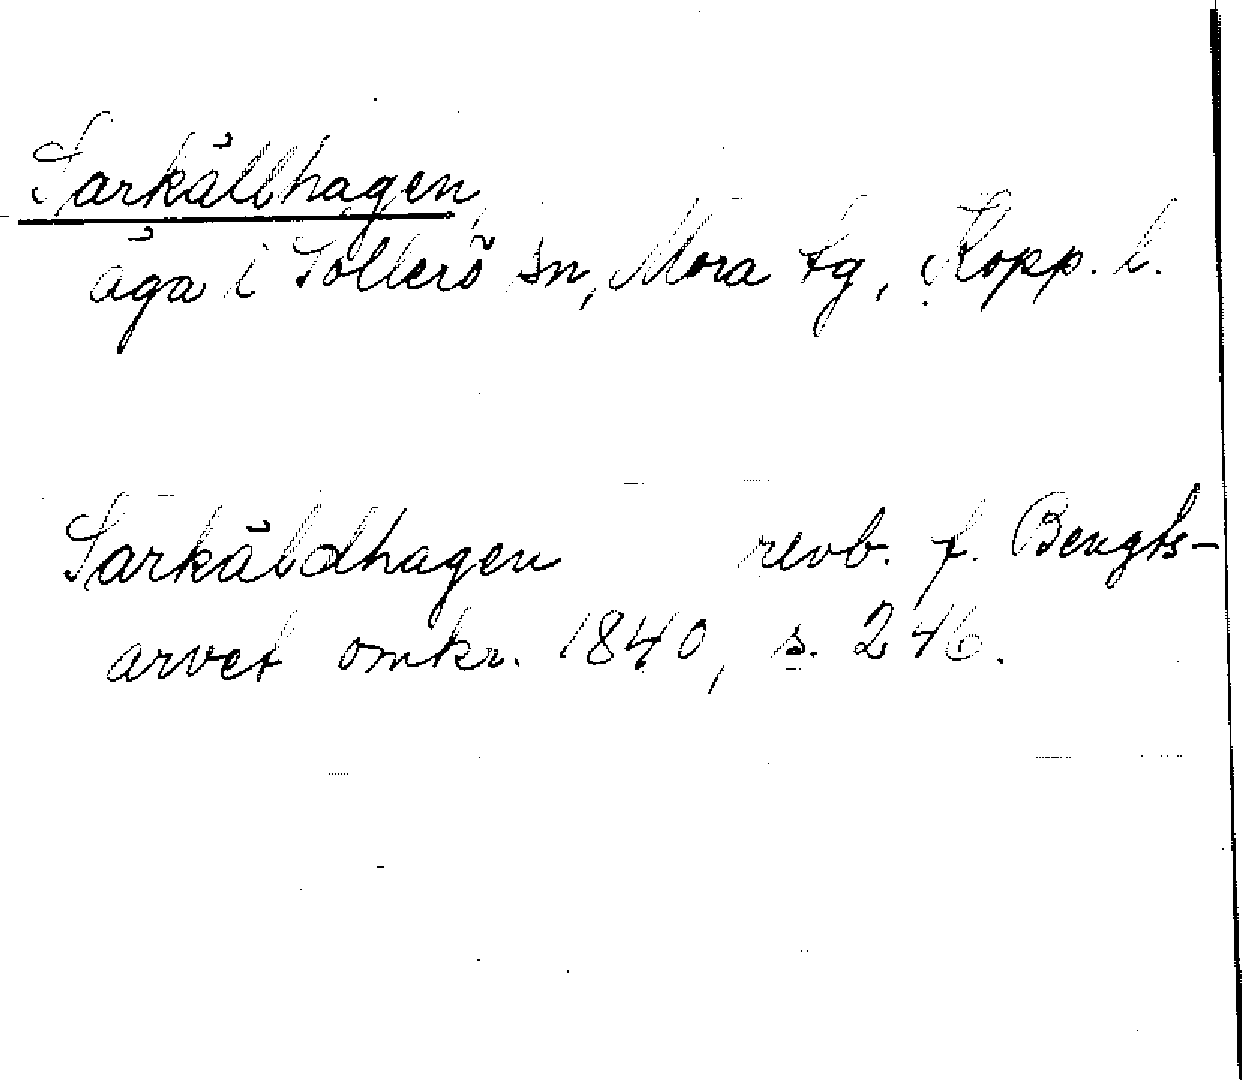 Sarkållhagen,
åga i Sollerö sn, Mora tg, Kopp. l.
Sarkåldhagen revb. f. Bengts-
arvet omkr. 1840, s. 246.